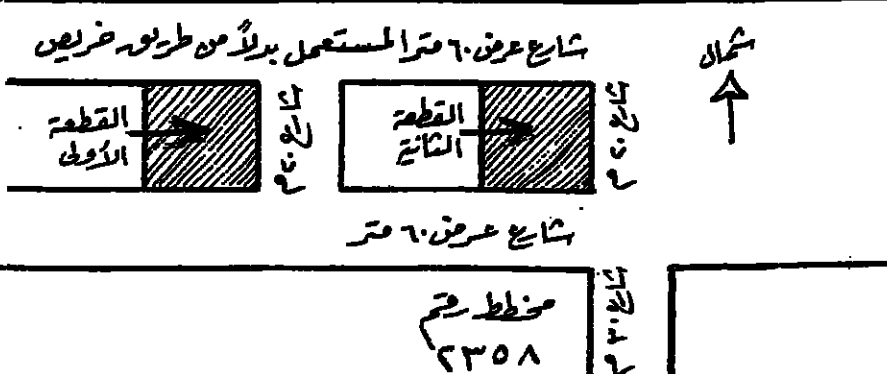 شارع عرض ٦٠ مترا المستعمل بدلاً من طريق خريص
شمال
القطعة
الأولى
شارع ٢٠ م
القطعة
الثانية
شارع ٢٠ م
شارع عرض ٦٠ متر
مخطط رقم
٢٣٥٨
شارع ٣٠ م